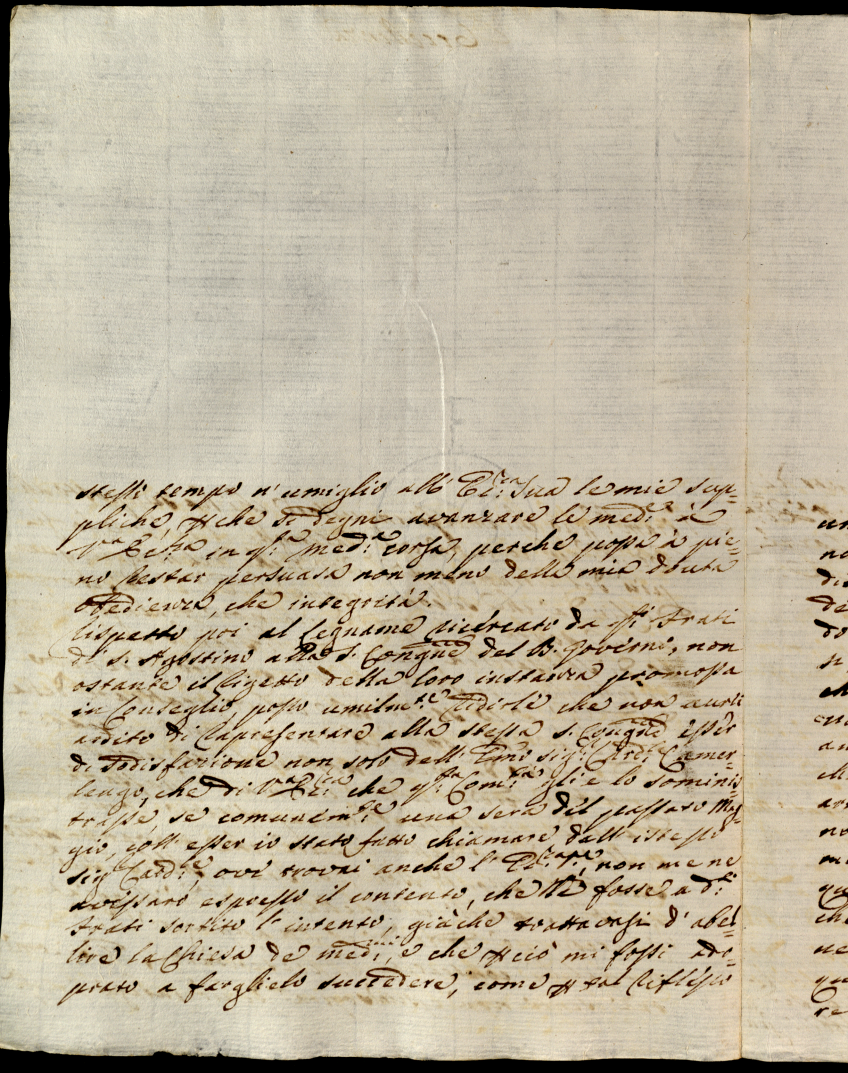 stessi tempo n'umiglio all'Ecc:za Sua le mie sup=
pliche, che si degni avanzare le med:e à
V'ra Ecc:za in q:ta med:a corsa, perche possa à pie=
no restar persuasa non meno della mia dovuta
obedienza, che integrità.
Rispetto poi al legname ricercato da q:ti Frati
di S. Agostino alla S. Congne del B. Governo, non
ostante il rigetto della loro instanza promossa
in Conseglio posso umilm:te ridirle che non avrei
ardito di rapresentare alla stessa S. Congne esser
di sodisfazione non solo dell'Emo Sig: Card:e Camer=
lengo, che di V'ra Ecc:za che q:ta Com:tà gli e lo sominis=
trasse, se comunem:te una sera del passato Mag=
gio, coll'esser io stato fatto chiamare dall'istesso
Sig Card:e, ove trovai anche l'Ecc:za non me ne
avessaro espresso il contento, che fosse a d:i
Frati sortito l'intento, giàche trattavasi d'abel=
lire la Chiesa de med:mi, e che ciò mi fossi ado=
prato a farglielo succedere, come tal riflesso
un
no
di
de
do
si
che
an
ch
ar
no
me
qu
che
ne
qu
re